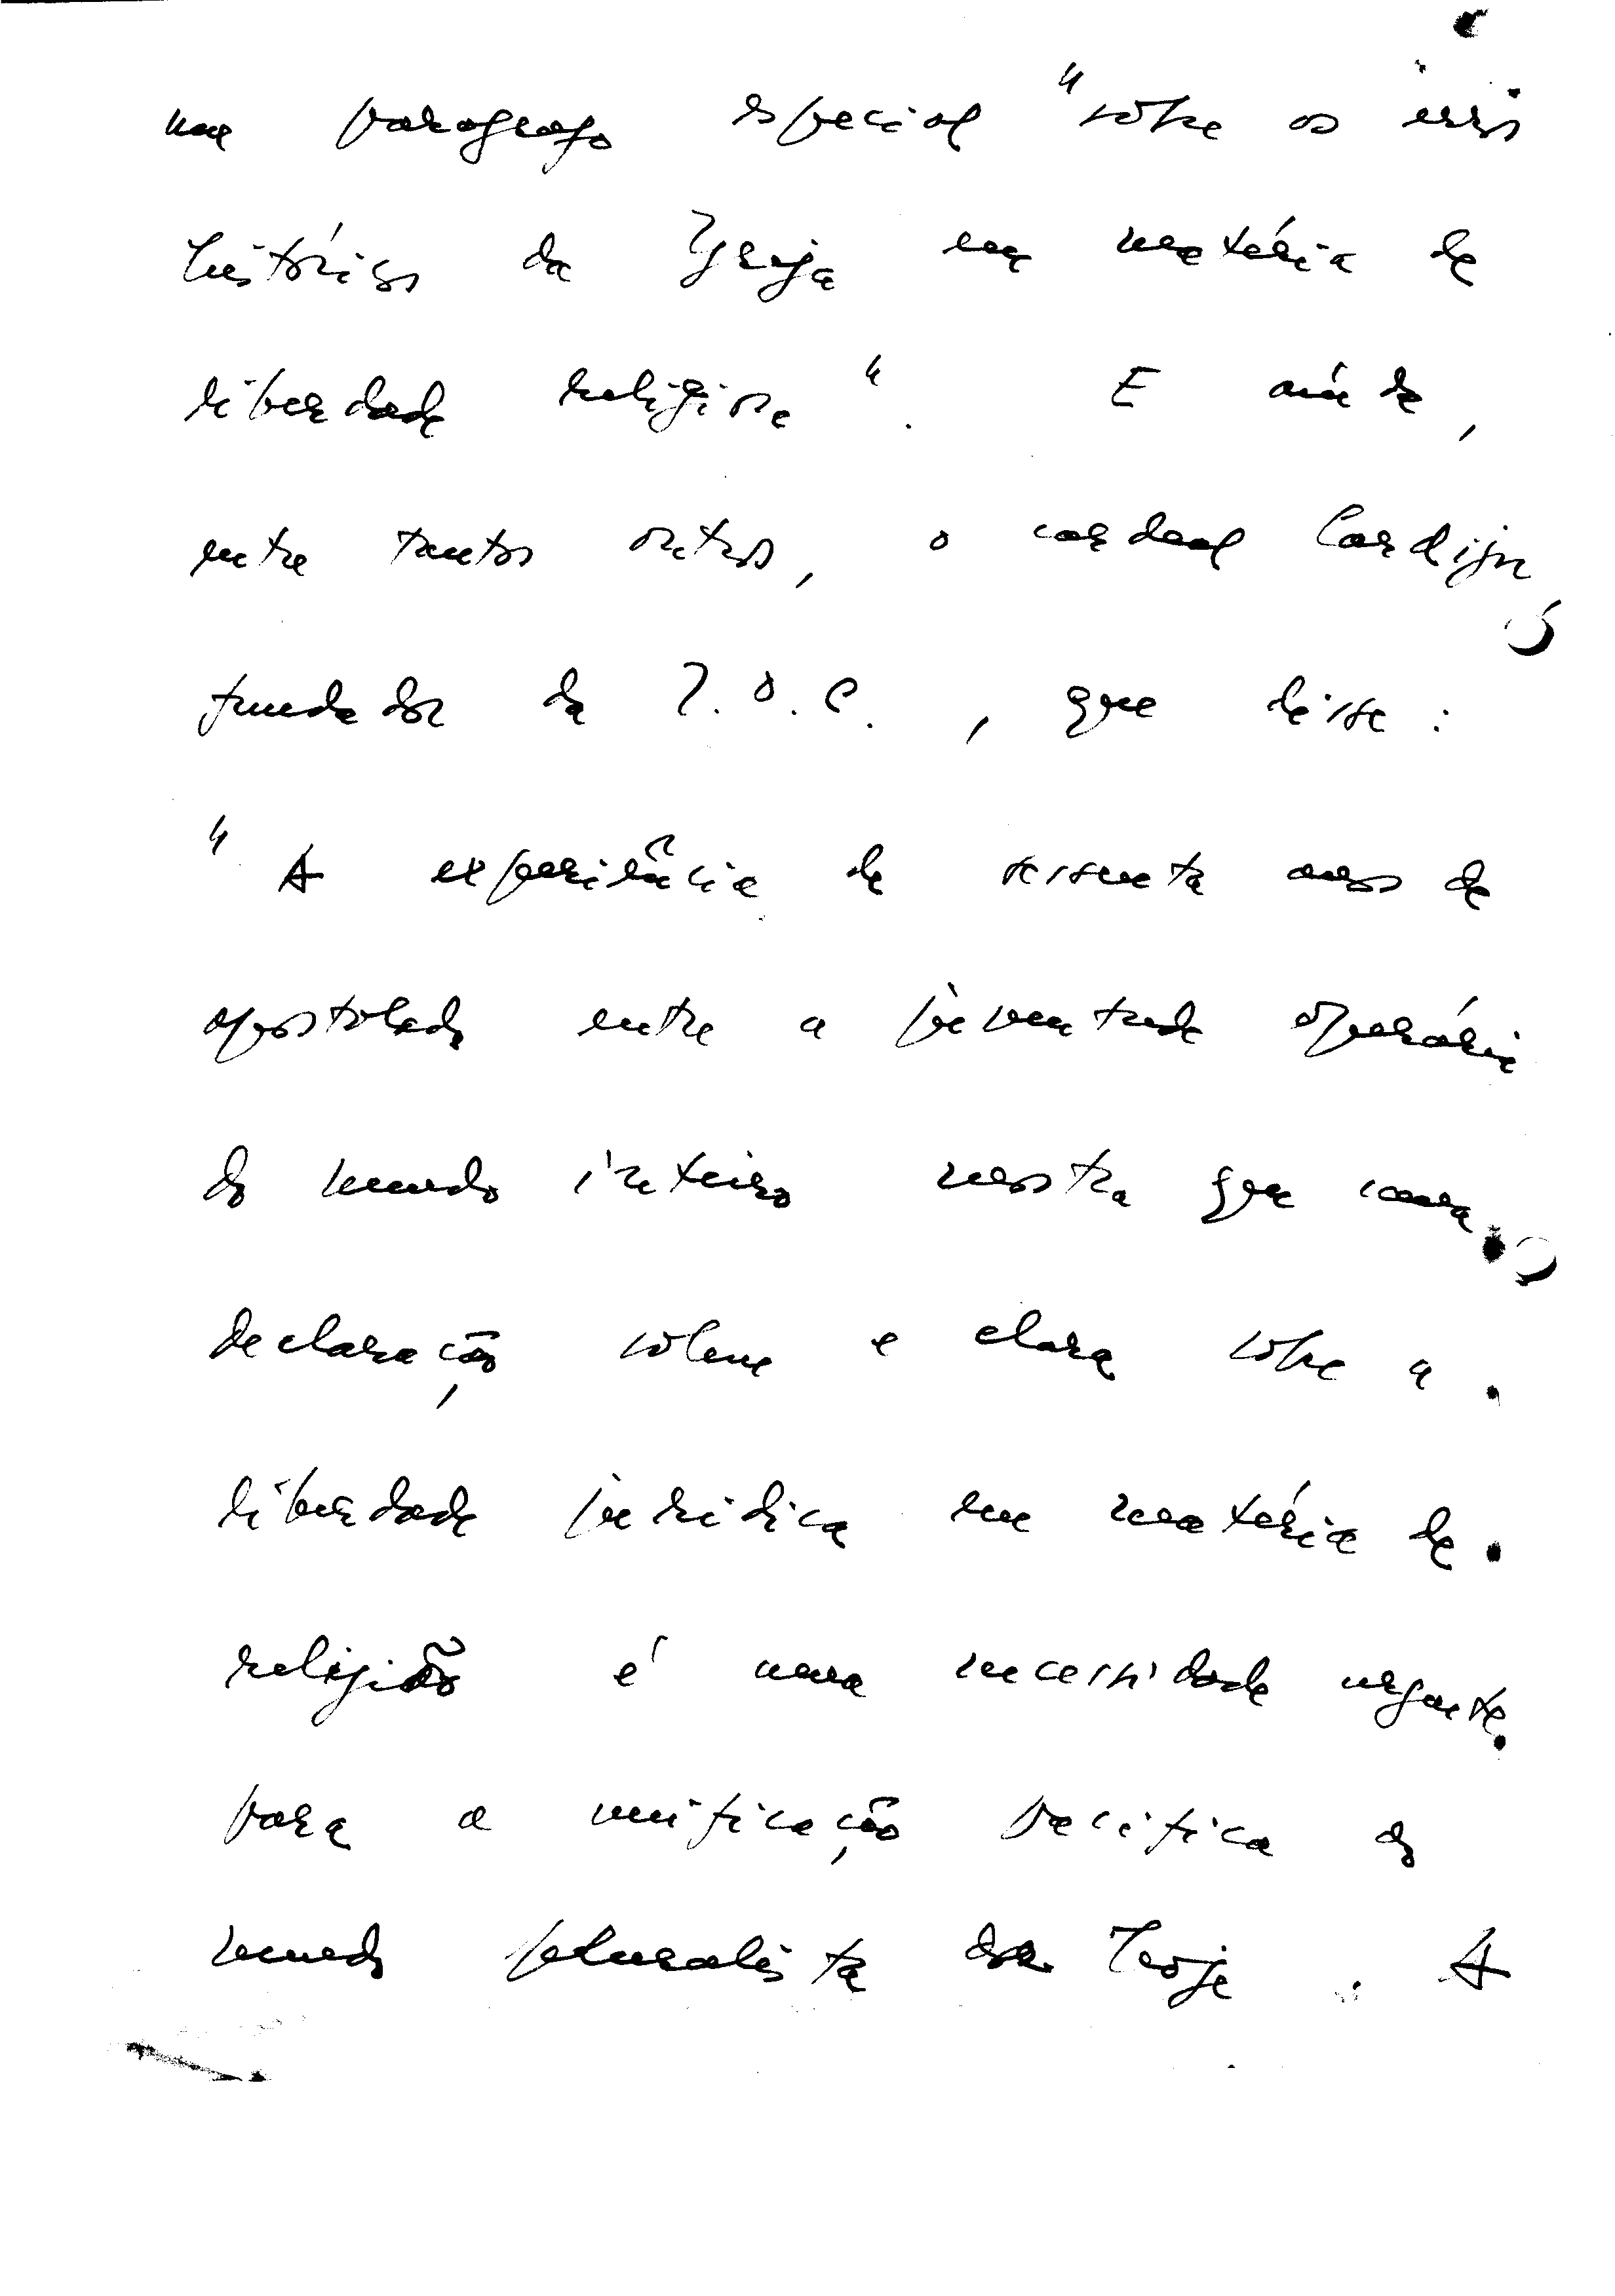 um parágrafo especial "sobre os erros
históricos da Igreja em matéria de
liberdade religiosa". E ainda,
entre tantos outros, o cardeal Cardijn,
fundador da J.O.C., que disse:
"A experiência de sessenta anos de
apostolado entre a juventude operária
do mundo inteiro mostra que uma
declaração solene e clara sobre a
liberdade jurídica em matéria de
religião é uma necessidade urgente
para a unificação pacífica do
mundo pluralista de hoje. A